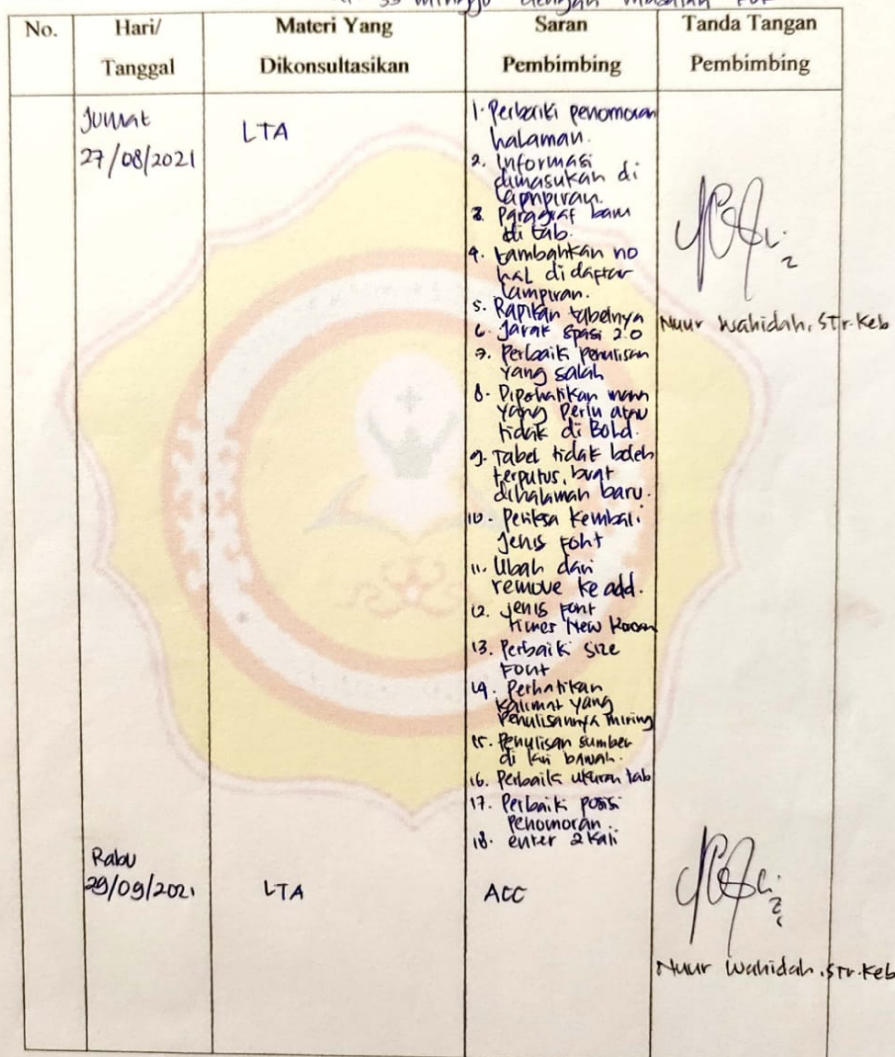 33 minggu dengan masalah
No. Hari/ Tanggal Materi Yang Dikonsultasikan Saran Pembimbing Tanda Tangan Pembimbing
Jumat
27/08/2021
LTA
1. Perbaiki penomoran
halaman.
2. Informasi
dimasukan di
lampiran.
3. Paragraf baru
di tab.
4. tambahkan no
hal di daftar
lampiran.
5. Rapikan tabelnya
6. Jarak spasi 2.0
7. Perbaik penulisan
yang salah
8. Diperhatikan mana
yang perlu atau
tidak di Bold.
9. Tabel tidak boleh
terputus, buat
dihalaman baru.
10. Periksa kembali
Jenis font
11. Ubah dari
remove ke add.
12. Jenis font
Times New Roman
13. Perbaiki size
Font
14. Perhatikan
kalimat yang
Penulisannya miring
15. Penulisan sumber
di kiri bawah.
16. Perbaiki ukuran tab
17. Perbaiki posisi
Penomoran.
18. enter 2 kali
Nuur Wahidah, STr.Keb
Rabu
29/09/2021
LTA
ACC
Nuur Wahidah, STr.Keb